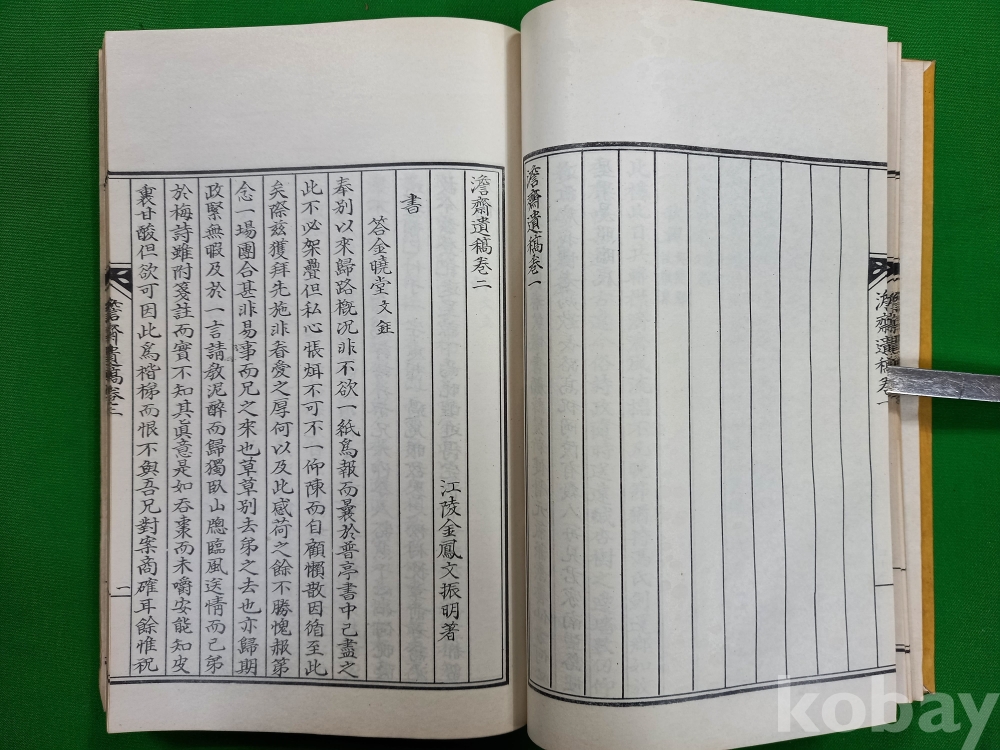 澹齋遺稿卷一
澹齋遺稿卷一
澹齋遺稿卷二
江陵金鳳文振明著
書
答金曉堂 文鈺
奉別以來歸路槪況非不欲一紙爲報而曩於普亭書中已盡之
此不必架疊但私心悵 不可不一仰陳而自顧懶散因循至此
矣際玆獲拜先施非眷愛之厚何以及此感荷之餘不勝愧赧第
念一場團合甚非易事而兄之來也草草別去弟之去也亦歸期
政緊無暇及於一言請敎泥醉而歸獨臥山牕臨風送情而已弟
於梅詩雖附箋註而實不知其眞意是如呑棗而未嚼安能知皮
裏甘酸但欲可因此爲楷梯而恨不與吾兄對案商確耳餘惟祝
澹齋遺稿卷二
一
kobay